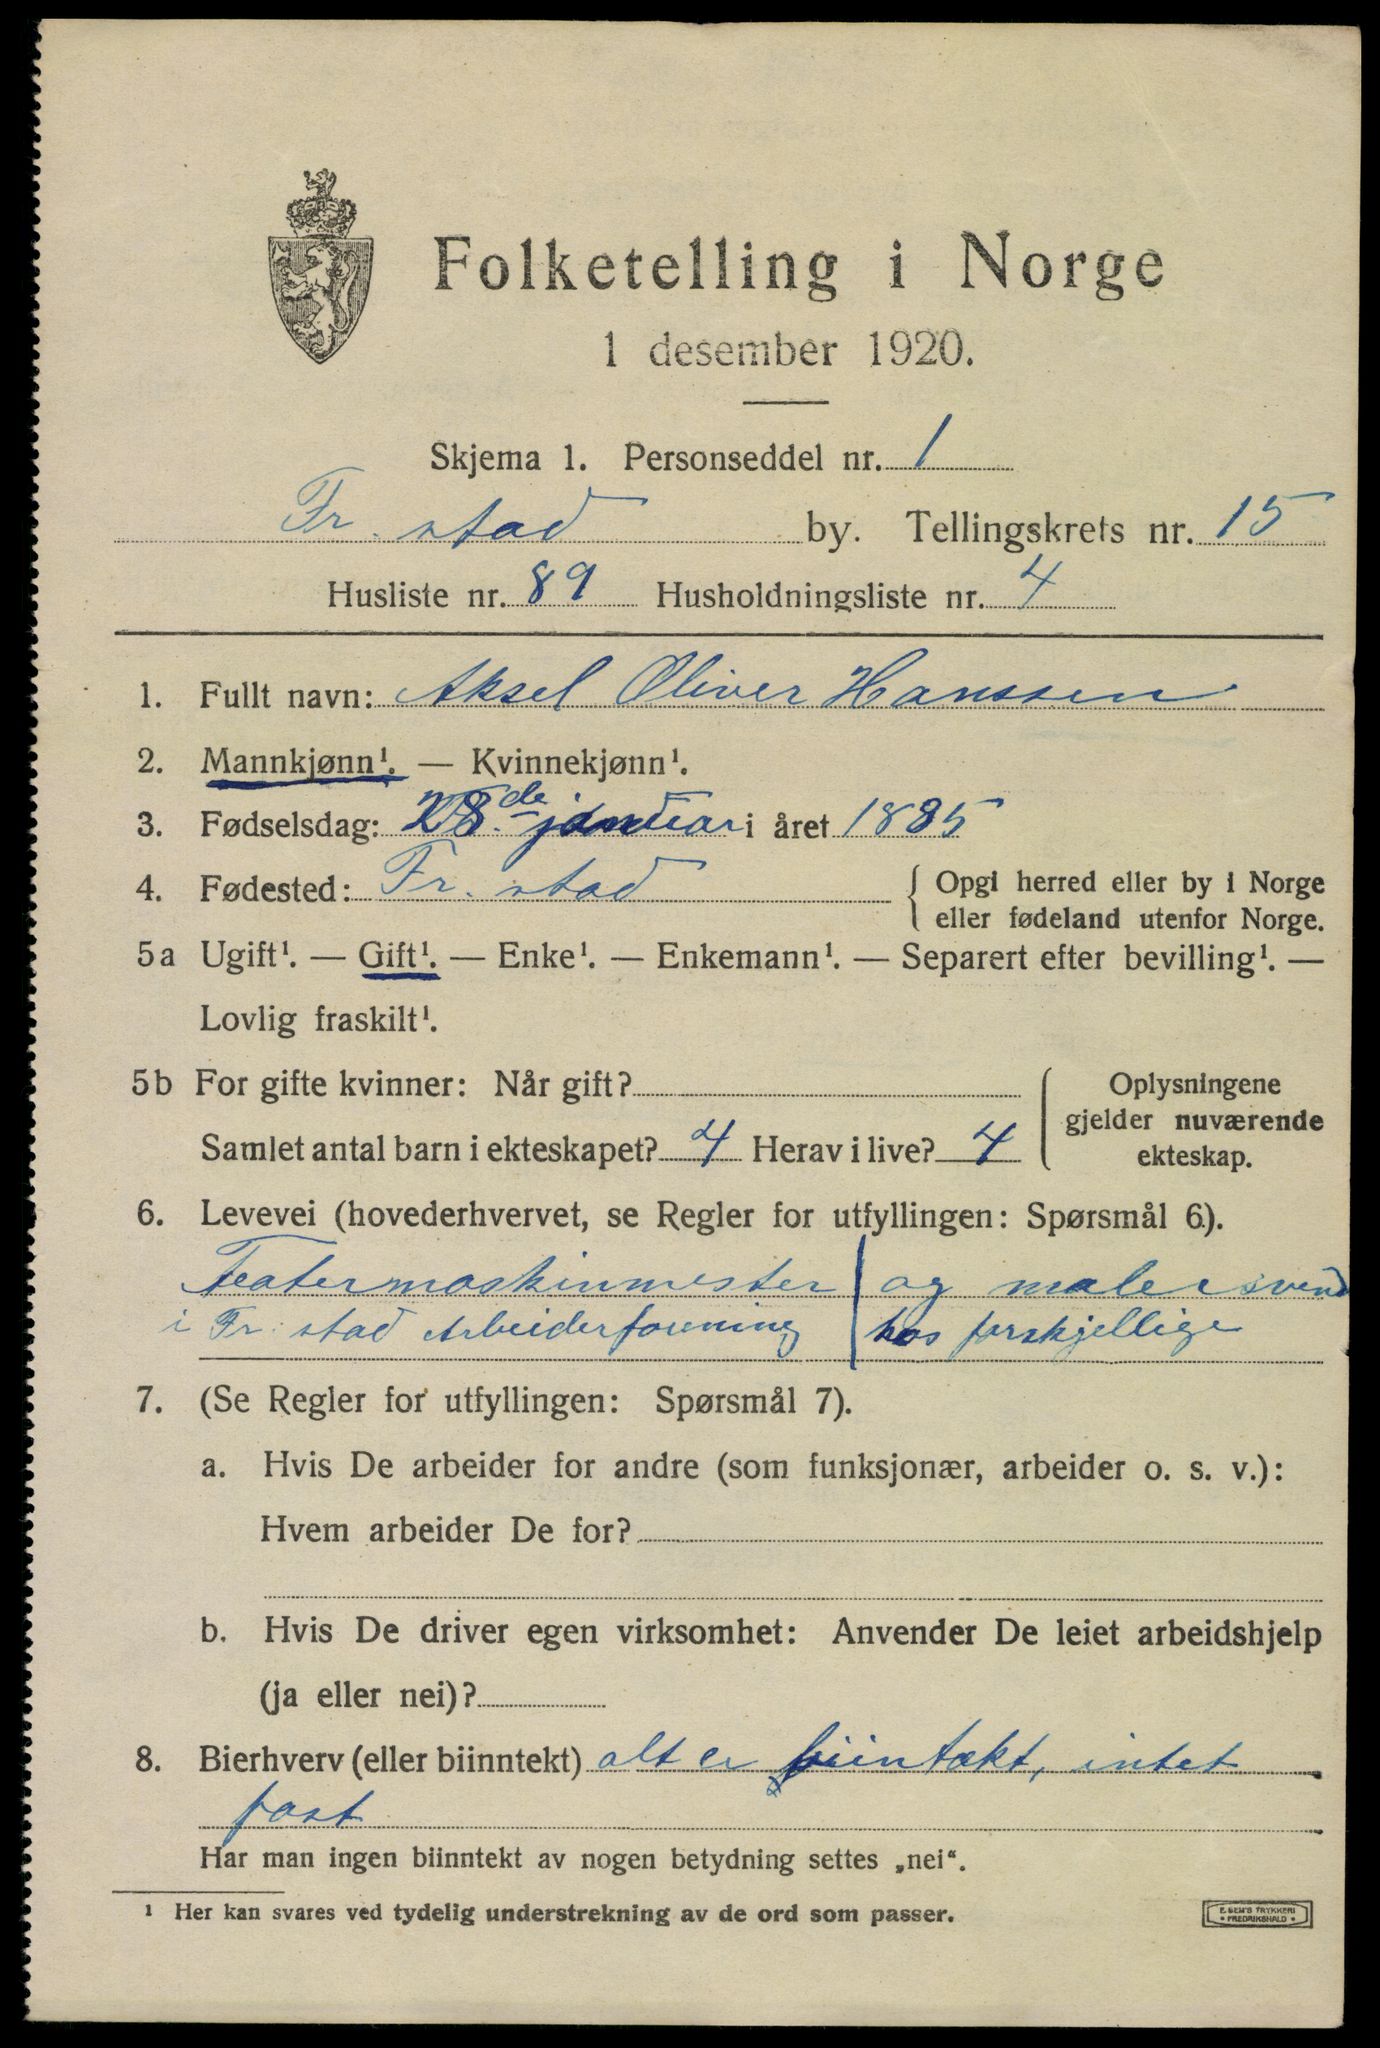 Folketelling i Norge
1 desember 1920.
Skjema 1. Personseddel nr. 1
Fr. stad by. Tellingskrets nr. 15
Husliste nr. 89 Husholdningsliste nr. 4
1. Fullt navn: Aksel Oliver Hanssen
2. Mannkjønn¹. — Kvinnekjønn¹.
3. Fødselsdag: 28.de januar i året 1885
4. Fødested: Fr. stad { Opgi herred eller by i Norge
eller fødeland utenfor Norge.
5a Ugift¹. — Gift¹. — Enke¹. — Enkemann¹. — Separert efter bevilling¹. —
Lovlig fraskilt¹.
5b For gifte kvinner: Når gift?
Samlet antal barn i ekteskapet? 4 Herav i live? 4
Oplysningene
gjelder nuværende
ekteskap.
6. Levevei (hovederhvervet, se Regler for utfyllingen: Spørsmål 6).
Teatermaskinmester / og malersvend
i Fr. stad Arbeiderforening / hos forskjellige
7. (Se Regler for utfyllingen: Spørsmål 7).
a. Hvis De arbeider for andre (som funksjonær, arbeider o. s. v.):
Hvem arbeider De for?
b. Hvis De driver egen virksomhet: Anvender De leiet arbeidshjelp
(ja eller nei)?
8. Bierhverv (eller biinntekt) alt er biintækt, intet
fast
Har man ingen biinntekt av nogen betydning settes „nei“.
¹ Her kan svares ved tydelig understrekning av de ord som passer.
E. SEM'S TRYKKERI
• FREDRIKSHALD •